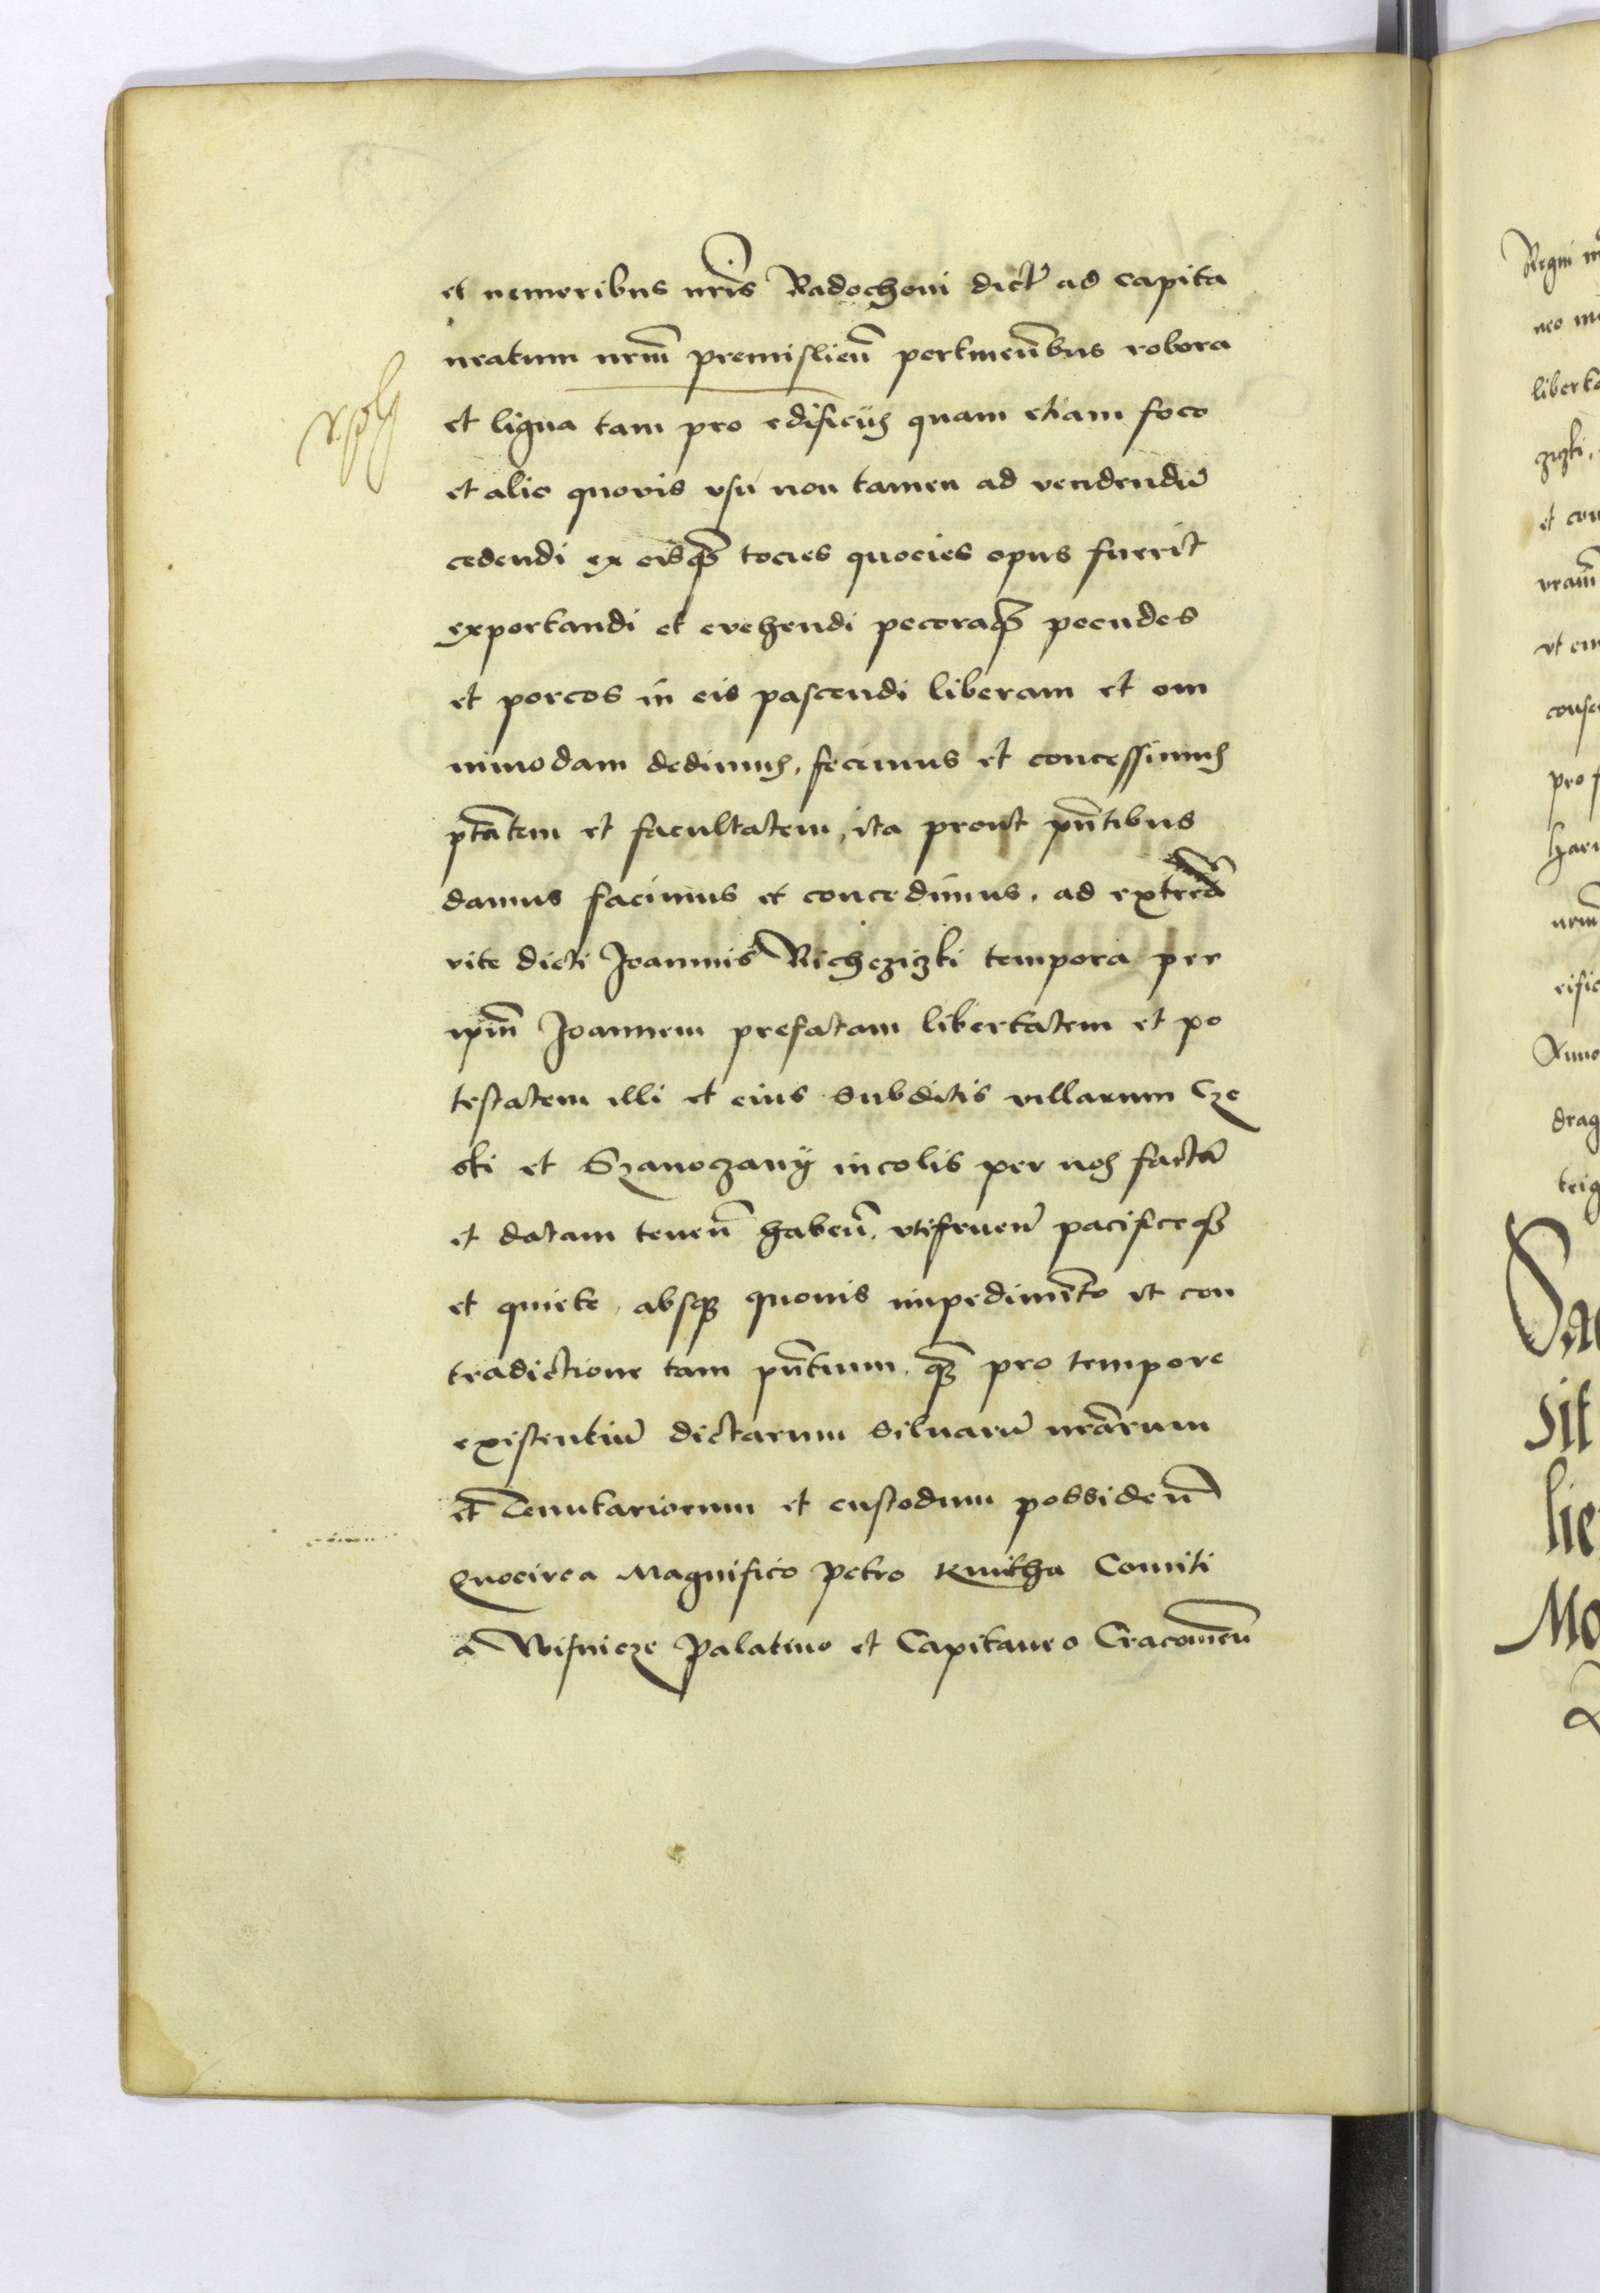 et nemoribus nr̃is Radochoni dict̃ ad capita
neatum nrm̃ premislieñ pertineñbus robora
et ligna tam pro edificijs quam etiam foco
et alio quovis vsu non tamen ad vendendũ
cedendi ex eisq̃ tocies quocies opus fuerit
exportandi et evehendi pecoraq̃ pecudes
et porcos in eis pascendi liberam et om
nimodam dedimus, fecimus et concessimus
ptãtem et facultatem, ita prout pñtibus
damus facimus et concedimus, ad
vite dicti Joannis Richczizki tempora per
ipm̃ Joannem prefatam libertatem et po
testatem illi et eius subditis villarum Cze
ski et Szanoczany incolis per nos factã
et datam teneñ habeñ, vtifrueñ pacificeq̃
et quiete, absq quouis impedimẽto et con
tradictione tam pñtium, q̃ pro tempore
existentiũ dictarum siluarũ nrãrum
et Tenutariorum et custodum possideñ
Quocirca Magnifico Petro Kmitha Comiti
a Wisnicze Palatino et Capitaneo Cracovieñ
Regni
neo
liberta
zizki,
et con
vram̃
vt
conse
pro f
hari
nrm̃
Anno
drag
Sit
lie
Mo